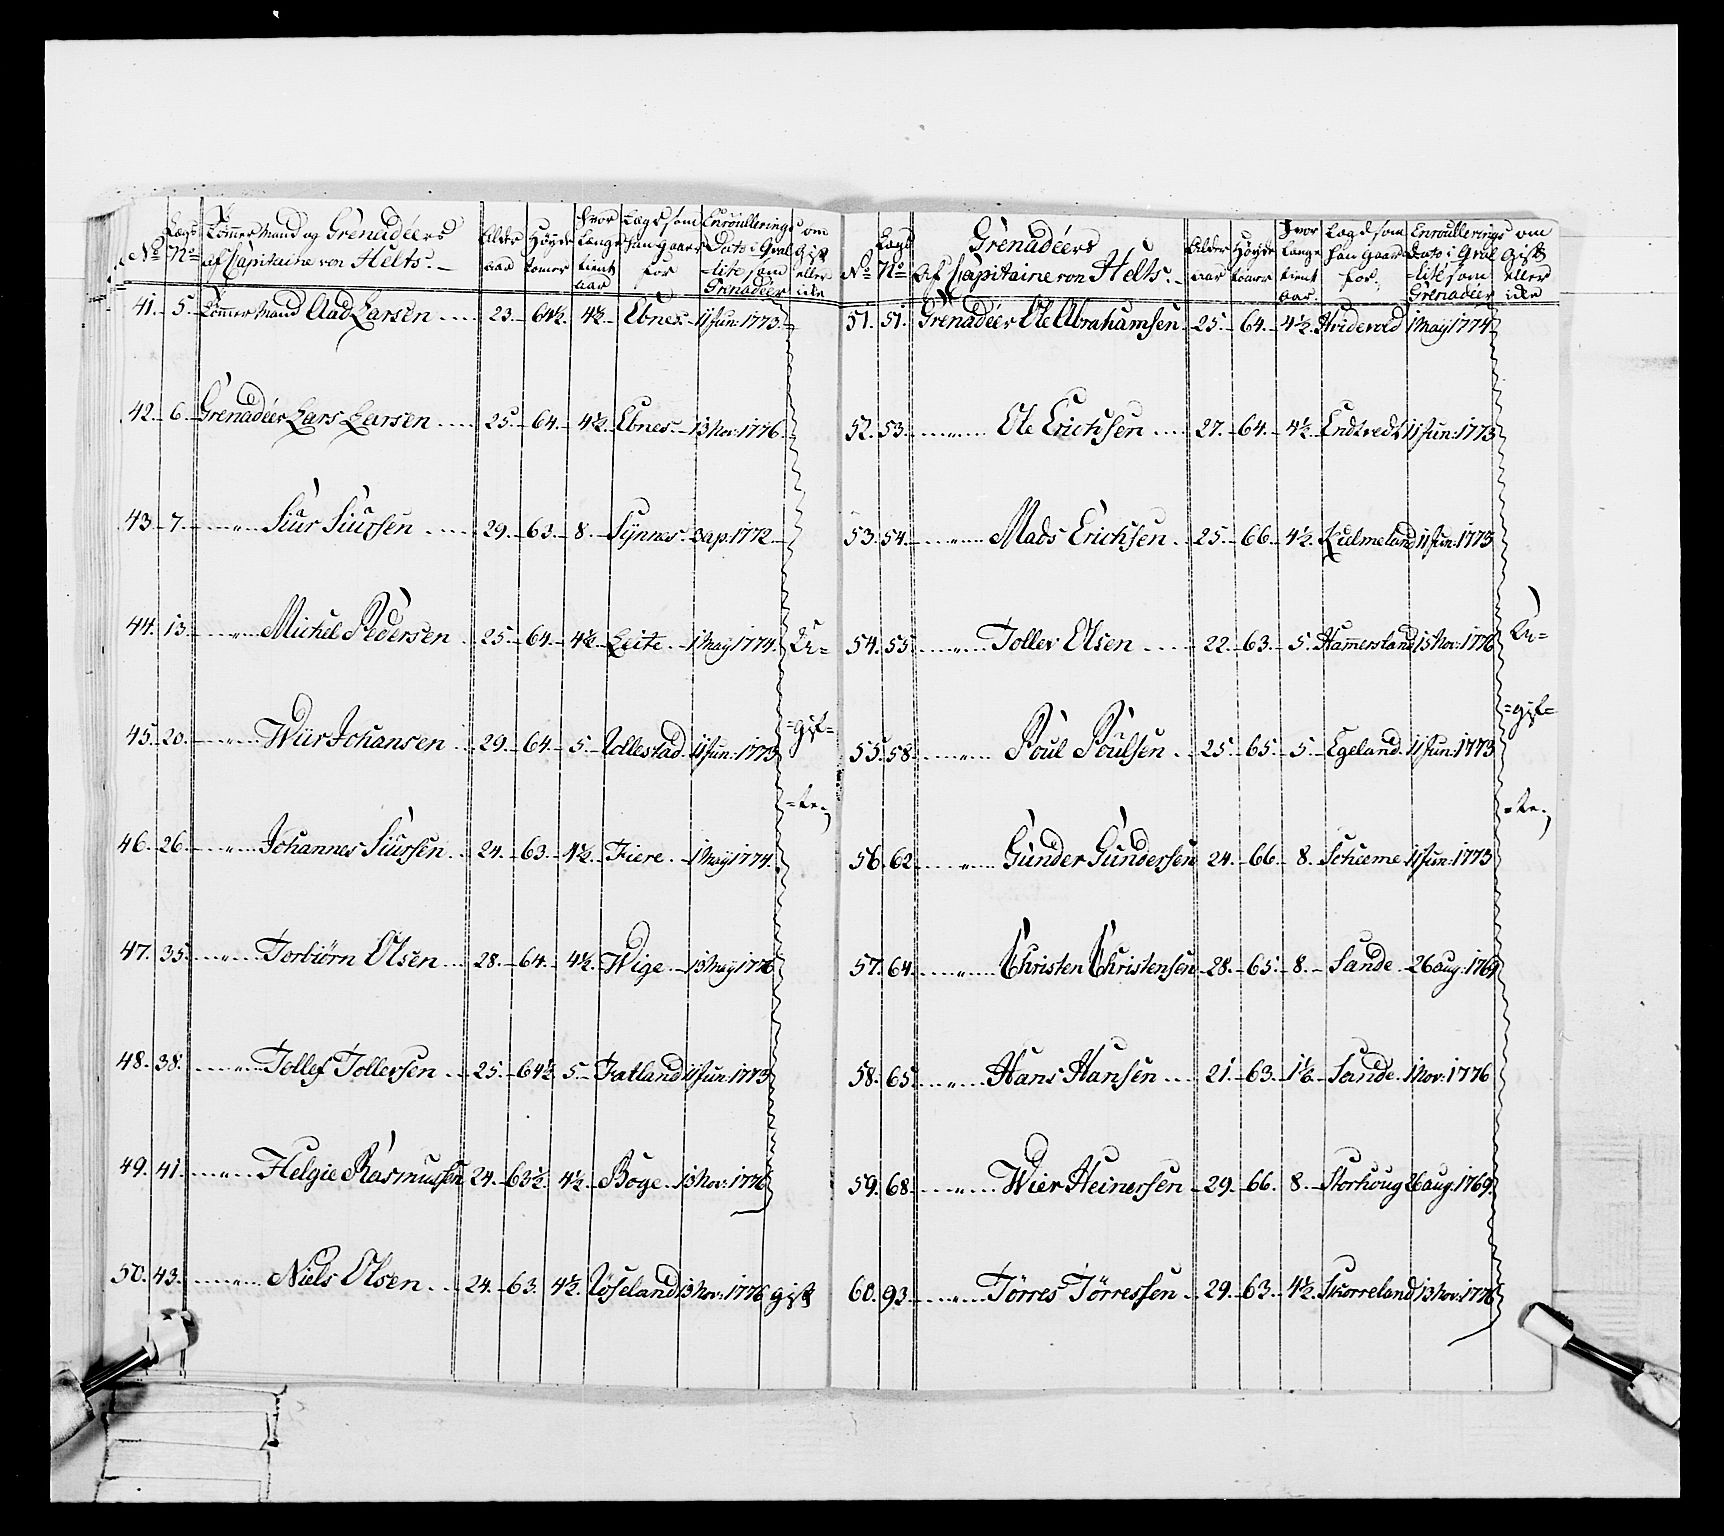 No Legd No Tömmermand og Grenadéers af Capitaine von Helts. Alder aar Høyde tomer Hvor Lange tient aar Legd som han Gaar for Enroullerings Dato i Qvalitet som Grenadéer om Gift eller ide
41. 5. Tömmermand Aad Larsen 23. 64½. 4½. Ebnes. 11 Jun: 1773.
42. 6. Grenadéer Lars Larsen 25. 64. 4½. Ebnes. 13 Nov: 1776.
43. 7. " Siur Siursen 29. 63. 8. Synnes. 3 ap: 1772.
44. 13. " Michel Pedersen 25. 64. 4½. Leite. 1 May 1774. U=
45. 20. " Wiir Johansen 29. 64. 5. Vollestad. 11 Jun: 1773 =gif=
=te.
46. 26. " Johannes Siursen 24. 63. 4½. Fiere. 1 May 1774.
47. 35. " Torbiørn Olsen 28. 64. 4½. Wige. 13 May 1776
48. 38. " Tollef Tollefsen 25. 64½. 5. Fatland 11 Jun: 1773
49. 41. " Helgie Rasmussen 24. 63½. 4½. Boge. 13 Nov: 1776
50. 43. " Niels Olsen 24. 63. 4½. Vöseland 13 Nov: 1776 gift
No Legd No Grenadéers af Capitaine von Helts. Alder aar Høyde tomer Hvor Lange tient aar. Legd som han Gaar for. Enroullerings Dato i Qvalitet som Grenadéer om Gift eller ide
51. 51. Grenadéer Ole Abrahamsen 25. 64. 4½. Hvidevold 1 May 1774
52. 53. " Ole Erichsen 27. 64. 4½. Endtvedt 11 Jun: 1773
53. 54. " Mads Erichsen 25. 66. 4½. Qvelmeland 11 Jun: 1773
54. 55. " Tollev Olsen 22. 63. 5. Hamersland 13 Nov: 1776 U=
=gif=
55. 58. " Poul Poulsen 25. 65. 5. Egeland. 11 Jun: 1773
=te.
56. 62. " Gunder Gundersen 24. 66. 8. Scheeme 11 Jun: 1773
57. 64. " Christen Christensen 28. 65. 8. Sande. 26 aug: 1769
58. 65. " Hans Hansen 21. 63. 1½. Sande. 1 Nov: 1776
59. 68. " Wier Heinersen 29. 66. 8. Storhoug 26 aug: 1769.
60. 93. " Törres Törressen 29. 63. 4½. Skorreland 13 Nov: 1776